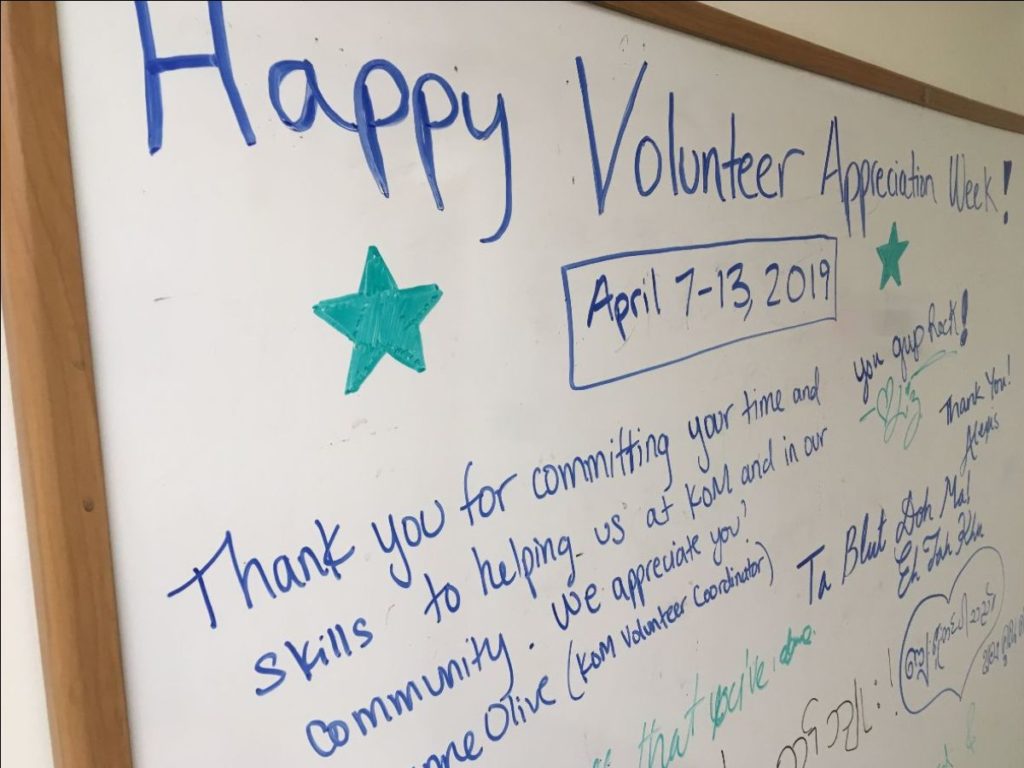 Happy Volunteer Appreciation Week!
April 7-13, 2019
you guys Rock!
Liz
Thank You!
Alexis
Thank you for committing your time and
skills to helping us at KOM and in our
community. We appreciate you!
Olive (KOM Volunteer Coordinator)
Ta Blut Doh Mal
Eh Tah Khu
that you've done.